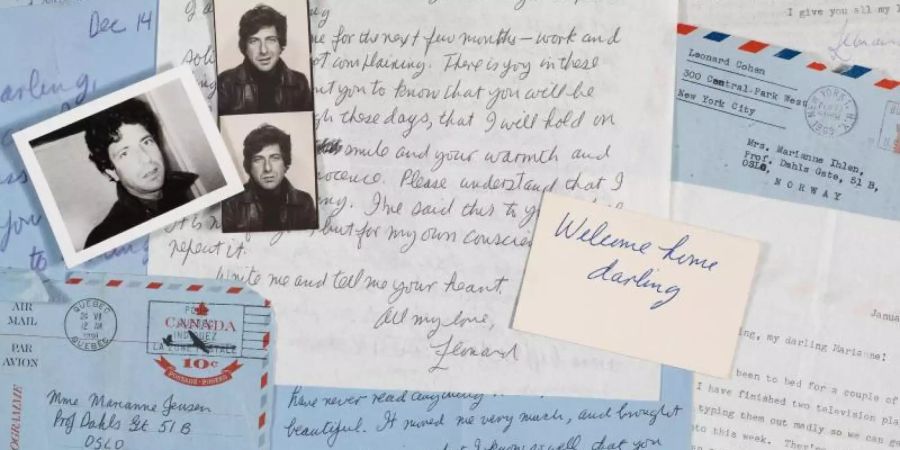 Dec 14
arling,
you
to
ny
me for the next few months — work and
soli
not complaining. There is joy in these
you to know that you will be
these days, that I will hold on
smile and your warmth and
Please understand that I
I've said this to
It is
but for my own
repeat it.
Write me and tell me your heart.
All my love,
Leonard
I give you all my
Leonard Cohen
300 Central Park West
New York City
NEW YORK, N.Y.
Mrs. Marianne Ihlen,
Prof. Dahls Gate, 51 B,
OSLO,
NORWAY
Welcome home
darling
AIR
MAIL
PAR
AVION
QUEBEC
12 AM
QUEBEC
CANADA
10¢
POSTAGE-POSTES
OGRAMME
Mme Marianne Jensen
Prof Dahls Gt 51 B
OSLO
have never read anything
beautiful. It moved me very much, and brought
I know as well that you
Janua
ng, my darling Marianne!
been to bed for a couple of
I have finished two television pla
typing them out madly so we can ge
to this week.